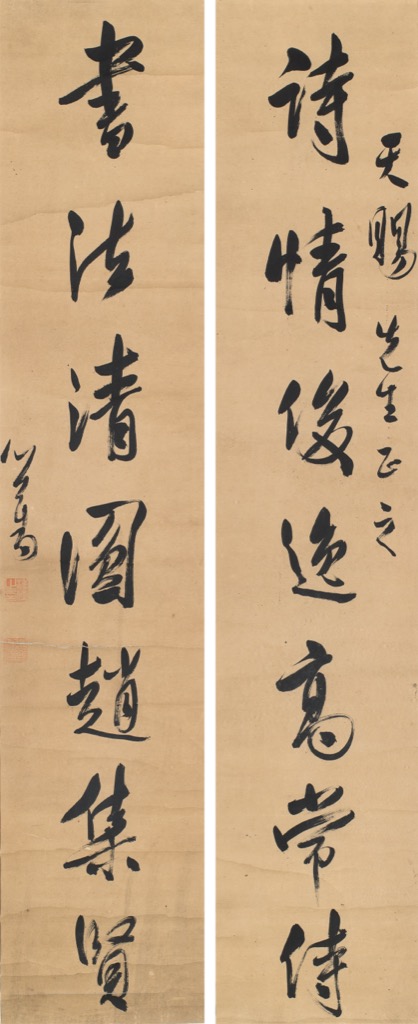 天賜先生正之
詩情俊逸高常侍
書法清圓趙集賢
心畬